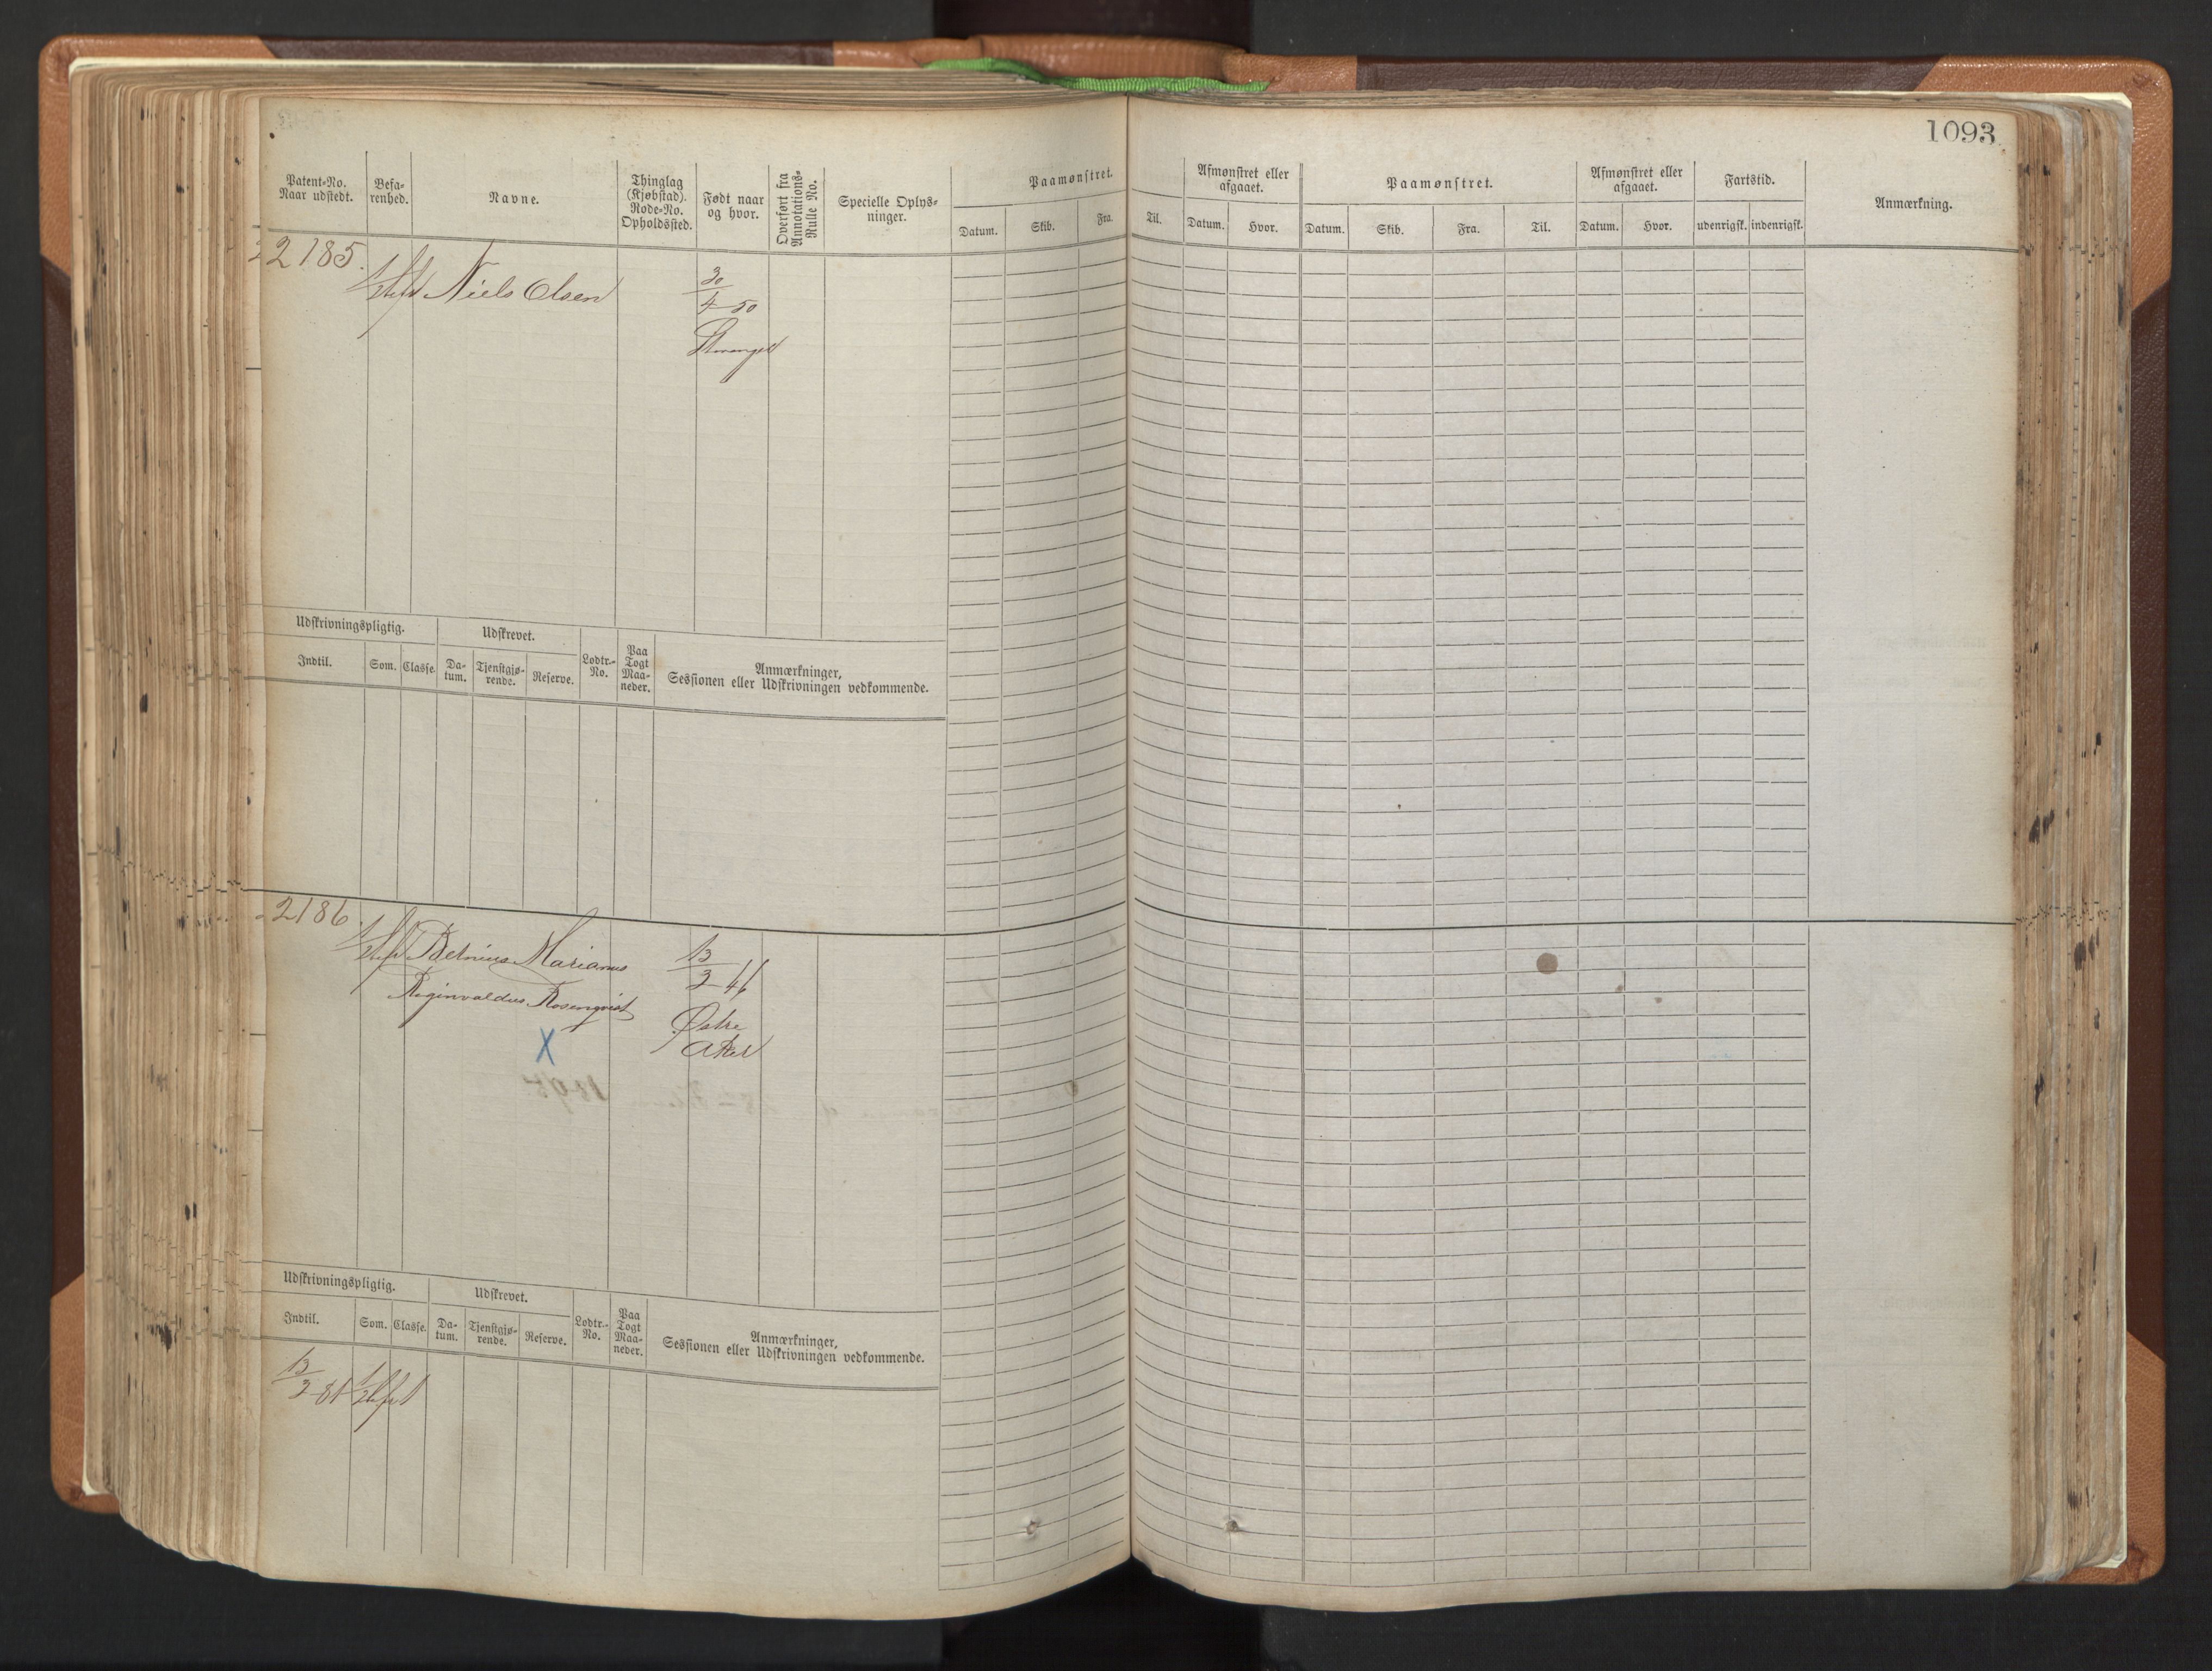 1093
Patent-No.
Naar udstedt.
Befa-
renhed.
Navne.
Thinglag
(Kjøbstad).
Rode-No.
Opholdssted.
Født naar
og hvor.
Overført fra
Annotations-
Rulle No.
Specielle Oplys-
ninger.
Paamønstret.
Datum.
Skib.
Fra.
Til.
Afmønstret eller
afgaaet.
Datum.
Hvor.
Paamønstret.
Datum.
Skib.
Fra.
Til.
Afmønstret eller
afgaaet.
Datum.
Hvor.
Fartstid.
udenrigsk.
indenrigsk.
Anmærkning.
2185.
Niels Olsen
30
4 50
Udskrivningspligtig.
Indtil.
Som.
Classe.
Udskrevet.
Da-
tum.
Tjenstgjø-
rende.
Reserve.
Lodtr.-
No.
Paa
Togt
Maa-
neder.
Anmærkninger,
Sessionen eller Udskrivningen vedkommende.
2186.
Marianus
Reginvaldus Rosenqvist
X
13
3 46
Østre
Aker
Udskrivningspligtig.
Indtil.
Som.
Classe.
Udskrevet.
Da-
tum.
Tjenstgjø-
rende.
Reserve.
Lodtr.-
No.
Paa
Togt
Maa-
neder.
Anmærkninger,
Sessionen eller Udskrivningen vedkommende.
13
3 81